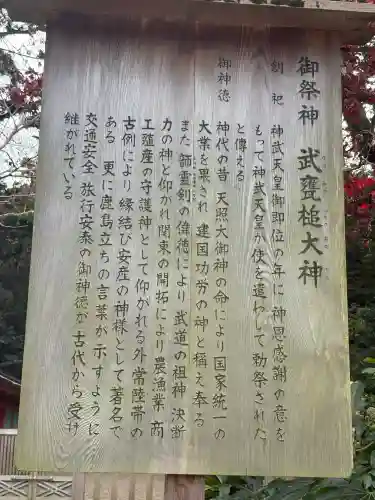 御祭神 武甕槌大神
創祀 神武天皇御即位の年に神恩感謝の意を
もって神武天皇が使を遣わして勅祭された
と傳える
御神徳 神代の昔 天照大御神の命により国家統一の
大業を果され 建国功労の神と稱え奉る
また 韴霊剣の偉徳により 武道の祖神 決断
力の神と仰がれ関東の開拓により 農漁業 商
工殖産の守護神として仰がれる外 常陸帯の
古例により 縁結び安産の神様として著名で
ある 更に鹿島立ちの言葉が示すように
交通安全 旅行安泰の御神徳が古代から受け
継がれている